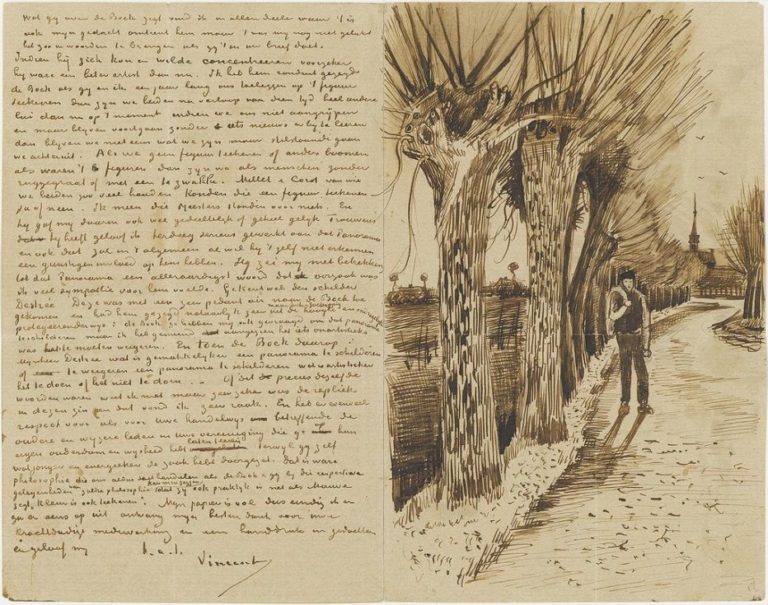 Wat gy over de Bock zegt vind ik in allen deele waar 't is
ook myn gedacht omtrent hem maar 't was my nog niet gelukt
het zoo in woorden te brengen als gy 't in uw brief doet.
Indien hij zich kon en wilde concentreeren voorzeker
hy ware een beter artist dan nu. Ik heb hem rondaut gezegd
de Bock als gy en ik een jaar lang ons toeleggen op 't figuur
teekenen dan zyn we beiden na verloop van dien tyd heel andere
lui dan nu op 't moment indien we ons niet aangrijpen
en maar blyven voortgaan zonder iets nieuws er by te leeren
dan blyven we niet eens wat we zyn maar stilstaande gaan
we achteruit. Als we geen figuur teekenen of ander boomen
als waren 't figuren dan zyn we als menschen zonder
ruggegraat of met een te zwakke. Millet & Corot van wie
we beiden zoo veel houden konden die een figuur teekenen
ja of neen. Ik meen die Meesters stonden voor niets. En
hy gaf my daarin ook wel gedeeltelyk of geheel gelyk Trouwens
hy heeft geloof ik heel erg serieus gewerkt aan dat Panorama
en ook dat zal in 't algemeen al wil hy 't zelf niet erkennen
een gunstigen invloed op hem hebben. Hy zei my met betrekking
tot dat Panorama een alleraardigst woord dat oorzaak was
ik veel sympathie voor hem voelde. Gy kent wel den schilder
Destrée Deze was met een zeer pedant air naar de Bock toe
gekomen en had hem gezegd natuurlyk zeer uit de hoogte
protegeerenderwys: de Bock ze hebben my ook gevraagd om dat panorama
te schilderen maar ik heb gemeend wegens het iets onartistieks
was het te moeten weigeren. En toen de Bock daarop
Mynheer Destrée wat is gemakkelyker een panorama te schilderen
of te weigeren een panorama te schilderen wat is artistieker
het te doen of het niet te doen.. Of dit precies dezelfde
woorden waren weet ik niet maar zoo zeker was de repliek
in dezen zin en dat vond ik zeer raak. En heb er evenveel
respect voor als voor uwe handelwys betreffende de
oudere en wyzere leden in uwe vereeniging die ge hun
eigen ouderdom en wysheid hebt laten terwyl gy zelf
wat jonger en energieker de zaak hebt doorgezet. Dat is ware
philosophie die ons allen doet handelen als de Bock & gy by die respectieve
gelegenheden kan men zeggen zy ook praktyk is net als Mauve
zegt, kleurs is ook teekenen. Myn papier is vol dus eindig ik er
ga er eens op uit ontvang myn besten dank voor uwe
krachtdadige medewerking en een handdruk in gedachten
en geloof my t. a. t.
Vincent